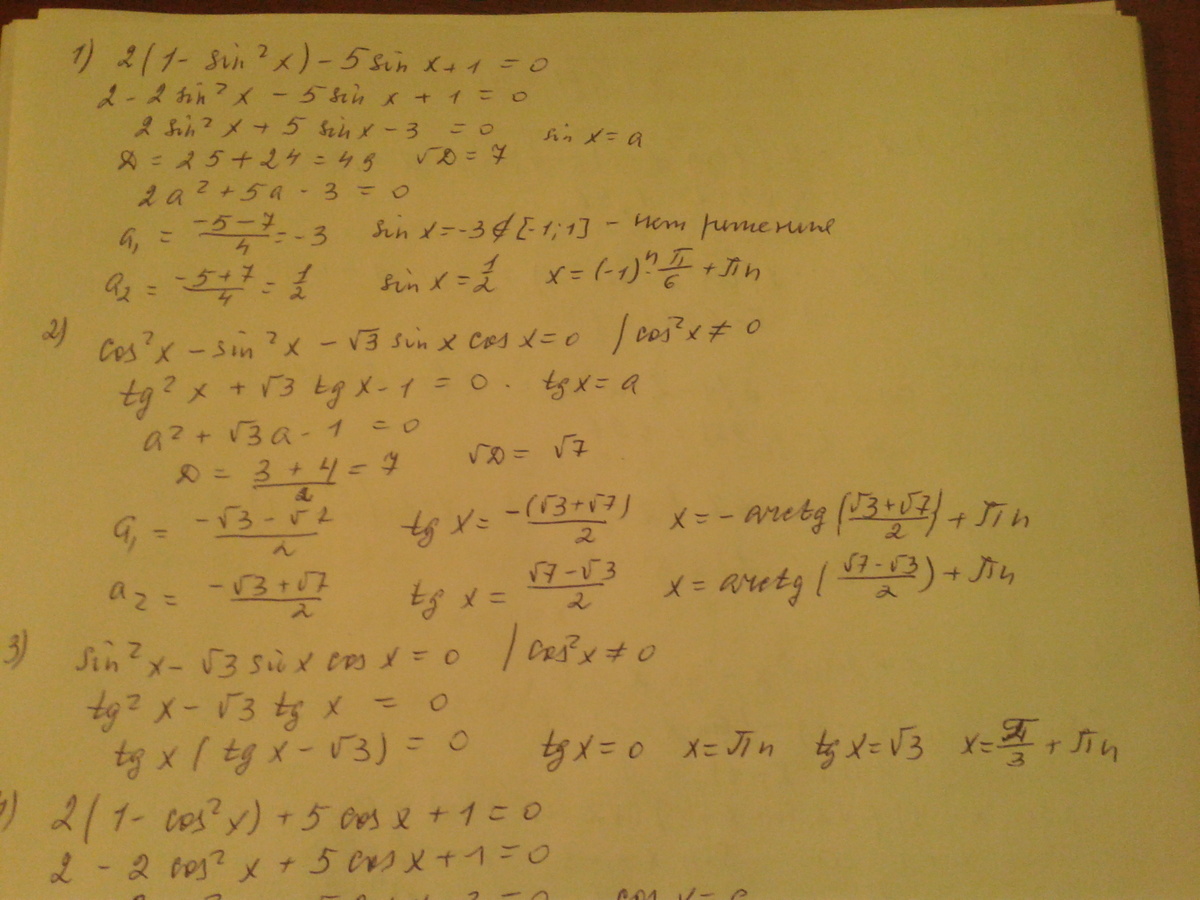 1) 2(1 - sin² x) - 5 sin x + 1 = 0
2 - 2 sin² x - 5 sin x + 1 = 0
2 sin² x + 5 sin x - 3 = 0 sin x = a
D = 25 + 24 = 49 √D = 7
2a² + 5a - 3 = 0
a₁ = (-5-7)/4 = -3 sin x = -3 ∉ [-1;1] - нет решение
a₂ = (-5+7)/4 = 1/2 sin x = 1/2 x = (-1)ⁿ · π/6 + πn
2) cos² x - sin² x - √3 sin x cos x = 0 / cos² x ≠ 0
tg² x + √3 tg x - 1 = 0 . tg x = a
a² + √3a - 1 = 0
D = (3 + 4)/2 = 7 √D = √7
a₁ = (-√3 - √7)/2 tg x = -(√3+√7)/2 x = - arctg ((√3+√7)/2) + πn
a₂ = (-√3 + √7)/2 tg x = (√7-√3)/2 x = arctg ((√7-√3)/2) + πn
3) sin² x - √3 sin x cos x = 0 / cos² x ≠ 0
tg² x - √3 tg x = 0
tg x (tg x - √3) = 0 tg x = 0 x = πn tg x = √3 x = π/3 + πn
2(1 - cos² x) + 5 cos x + 1 = 0
2 - 2 cos² x + 5 cos x + 1 = 0